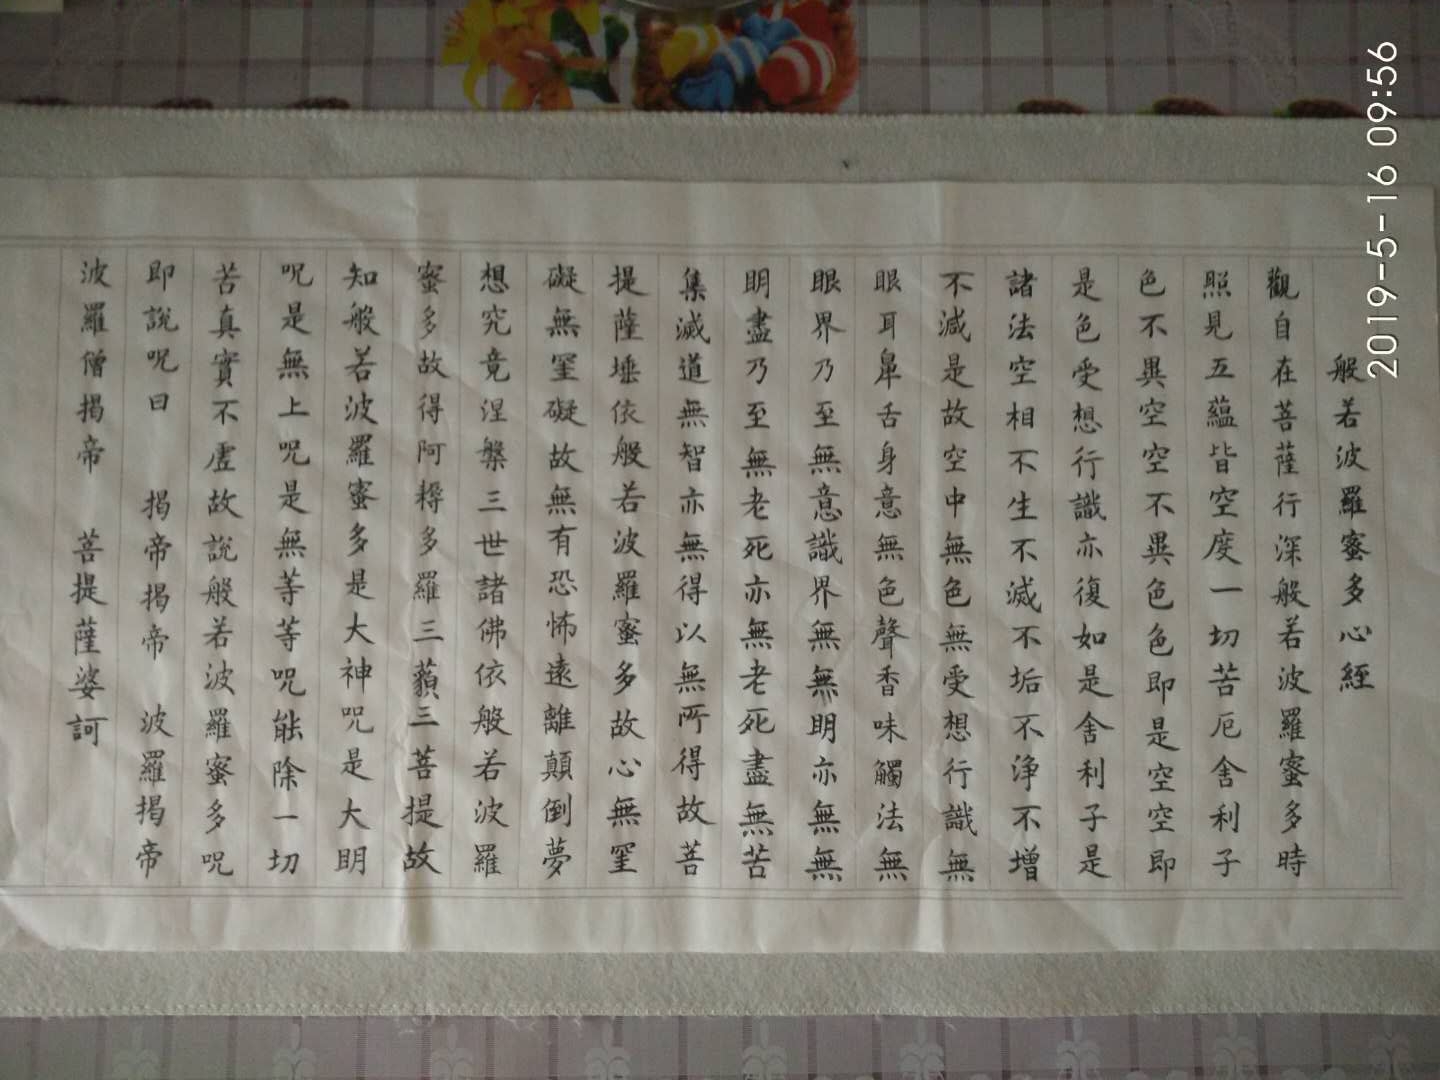 般若波羅蜜多心經
觀自在菩薩行深般若波羅蜜多時
照見五蘊皆空度一切苦厄舍利子
色不異空空不異色色即是空空即
是色受想行識亦復如是舍利子是
諸法空相不生不滅不垢不淨不增
不減是故空中無色無受想行識無
眼耳鼻舌身意無色聲香味觸法無
眼界乃至無意識界無無明亦無無
明盡乃至無老死亦無老死盡無苦
集滅道無智亦無得以無所得故菩
提薩埵依般若波羅蜜多故心無罣
礙無罣礙故無有恐怖遠離顛倒夢
想究竟涅槃三世諸佛依般若波羅
蜜多故得阿耨多羅三藐三菩提故
知般若波羅蜜多是大神咒是大明
咒是無上咒是無等等咒能除一切
苦真實不虛故說般若波羅蜜多咒
即說咒曰 揭帝揭帝 波羅揭帝
波羅僧揭帝 菩提薩婆訶
2019-5-16 09:56